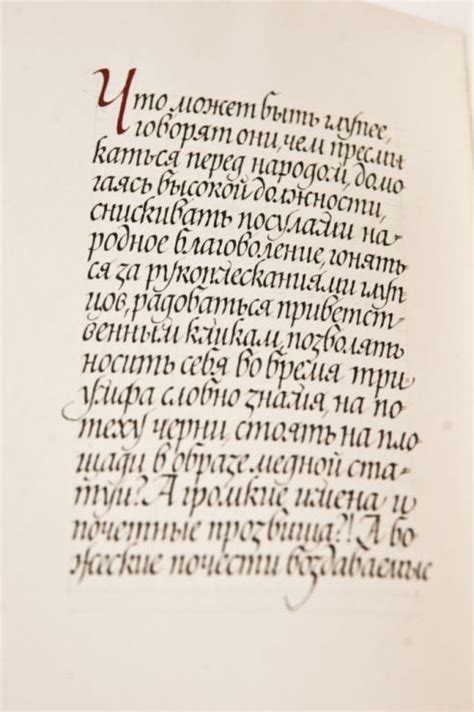 Что может быть глупее,
говорят они, чем пресмы
каться перед народом, домо
гаясь высокой должности,
снискивать посулами на-
родное благоволение, гонять
ся за рукоплесканиями глуп
цов, радоваться приветст
венным кликам, позволять
носить себя во время три
умфа словно знамя, на по
теху черни, стоять на пло
щади в образе медной ста-
туи? А громкие имена и
почетные прозвища?! А бо
жеские почести воздаваемые